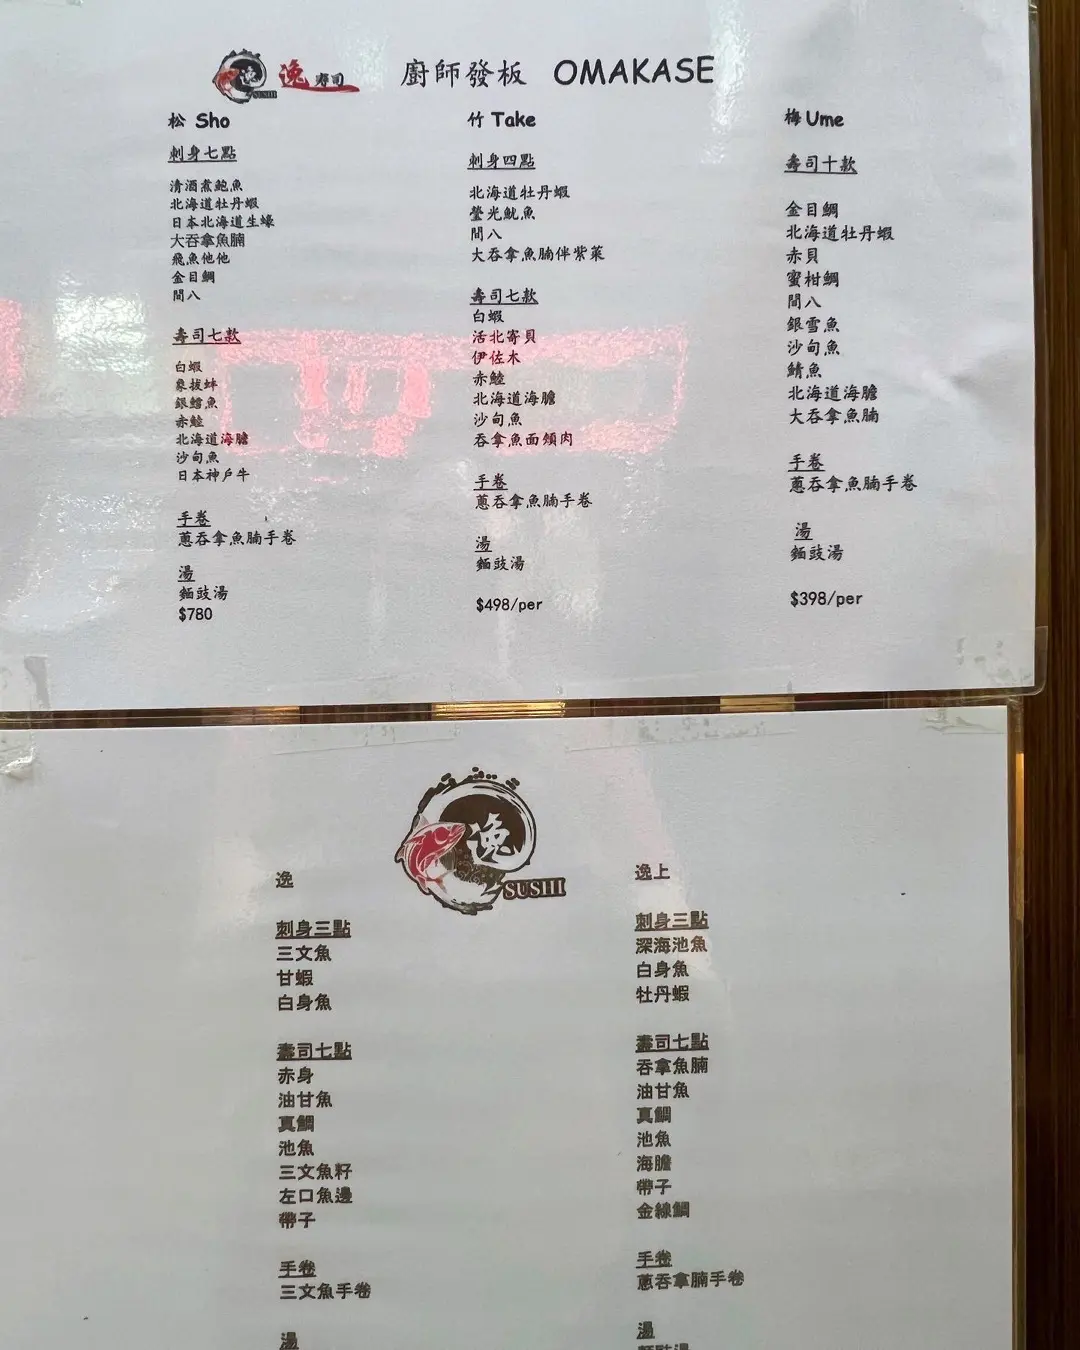 逸 SUSHI 逸 壽司 廚師發板 OMAKASE
松 Sho
刺身七點
清酒煮鮑魚
北海道牡丹蝦
日本北海道生蠔
大吞拿魚腩
飛魚他他
金目鯛
間八
壽司七款
白蝦
象拔蚌
銀鱈魚
赤鯥
北海道海膽
沙甸魚
日本神戶牛
手卷
蔥吞拿魚腩手卷
湯
麵豉湯
$780
竹 Take
刺身四點
北海道牡丹蝦
瑩光魷魚
間八
大吞拿魚腩伴紫菜
壽司七款
白蝦
活北寄貝
伊佐木
赤鯥
北海道海膽
沙甸魚
吞拿魚面頰肉
手卷
蔥吞拿魚腩手卷
湯
麵豉湯
$498/per
梅 Ume
壽司十款
金目鯛
北海道牡丹蝦
赤貝
蜜柑鯛
間八
銀雪魚
沙甸魚
鯖魚
北海道海膽
大吞拿魚腩
手卷
蔥吞拿魚腩手卷
湯
麵豉湯
$398/per
逸 SUSHI
逸
刺身三點
三文魚
甘蝦
白身魚
壽司七點
赤身
油甘魚
真鯛
池魚
三文魚籽
左口魚邊
帶子
手卷
三文魚手卷
湯
逸上
刺身三點
深海池魚
白身魚
牡丹蝦
壽司七點
吞拿魚腩
油甘魚
真鯛
池魚
海膽
帶子
金線鯛
手卷
蔥吞拿腩手卷
湯